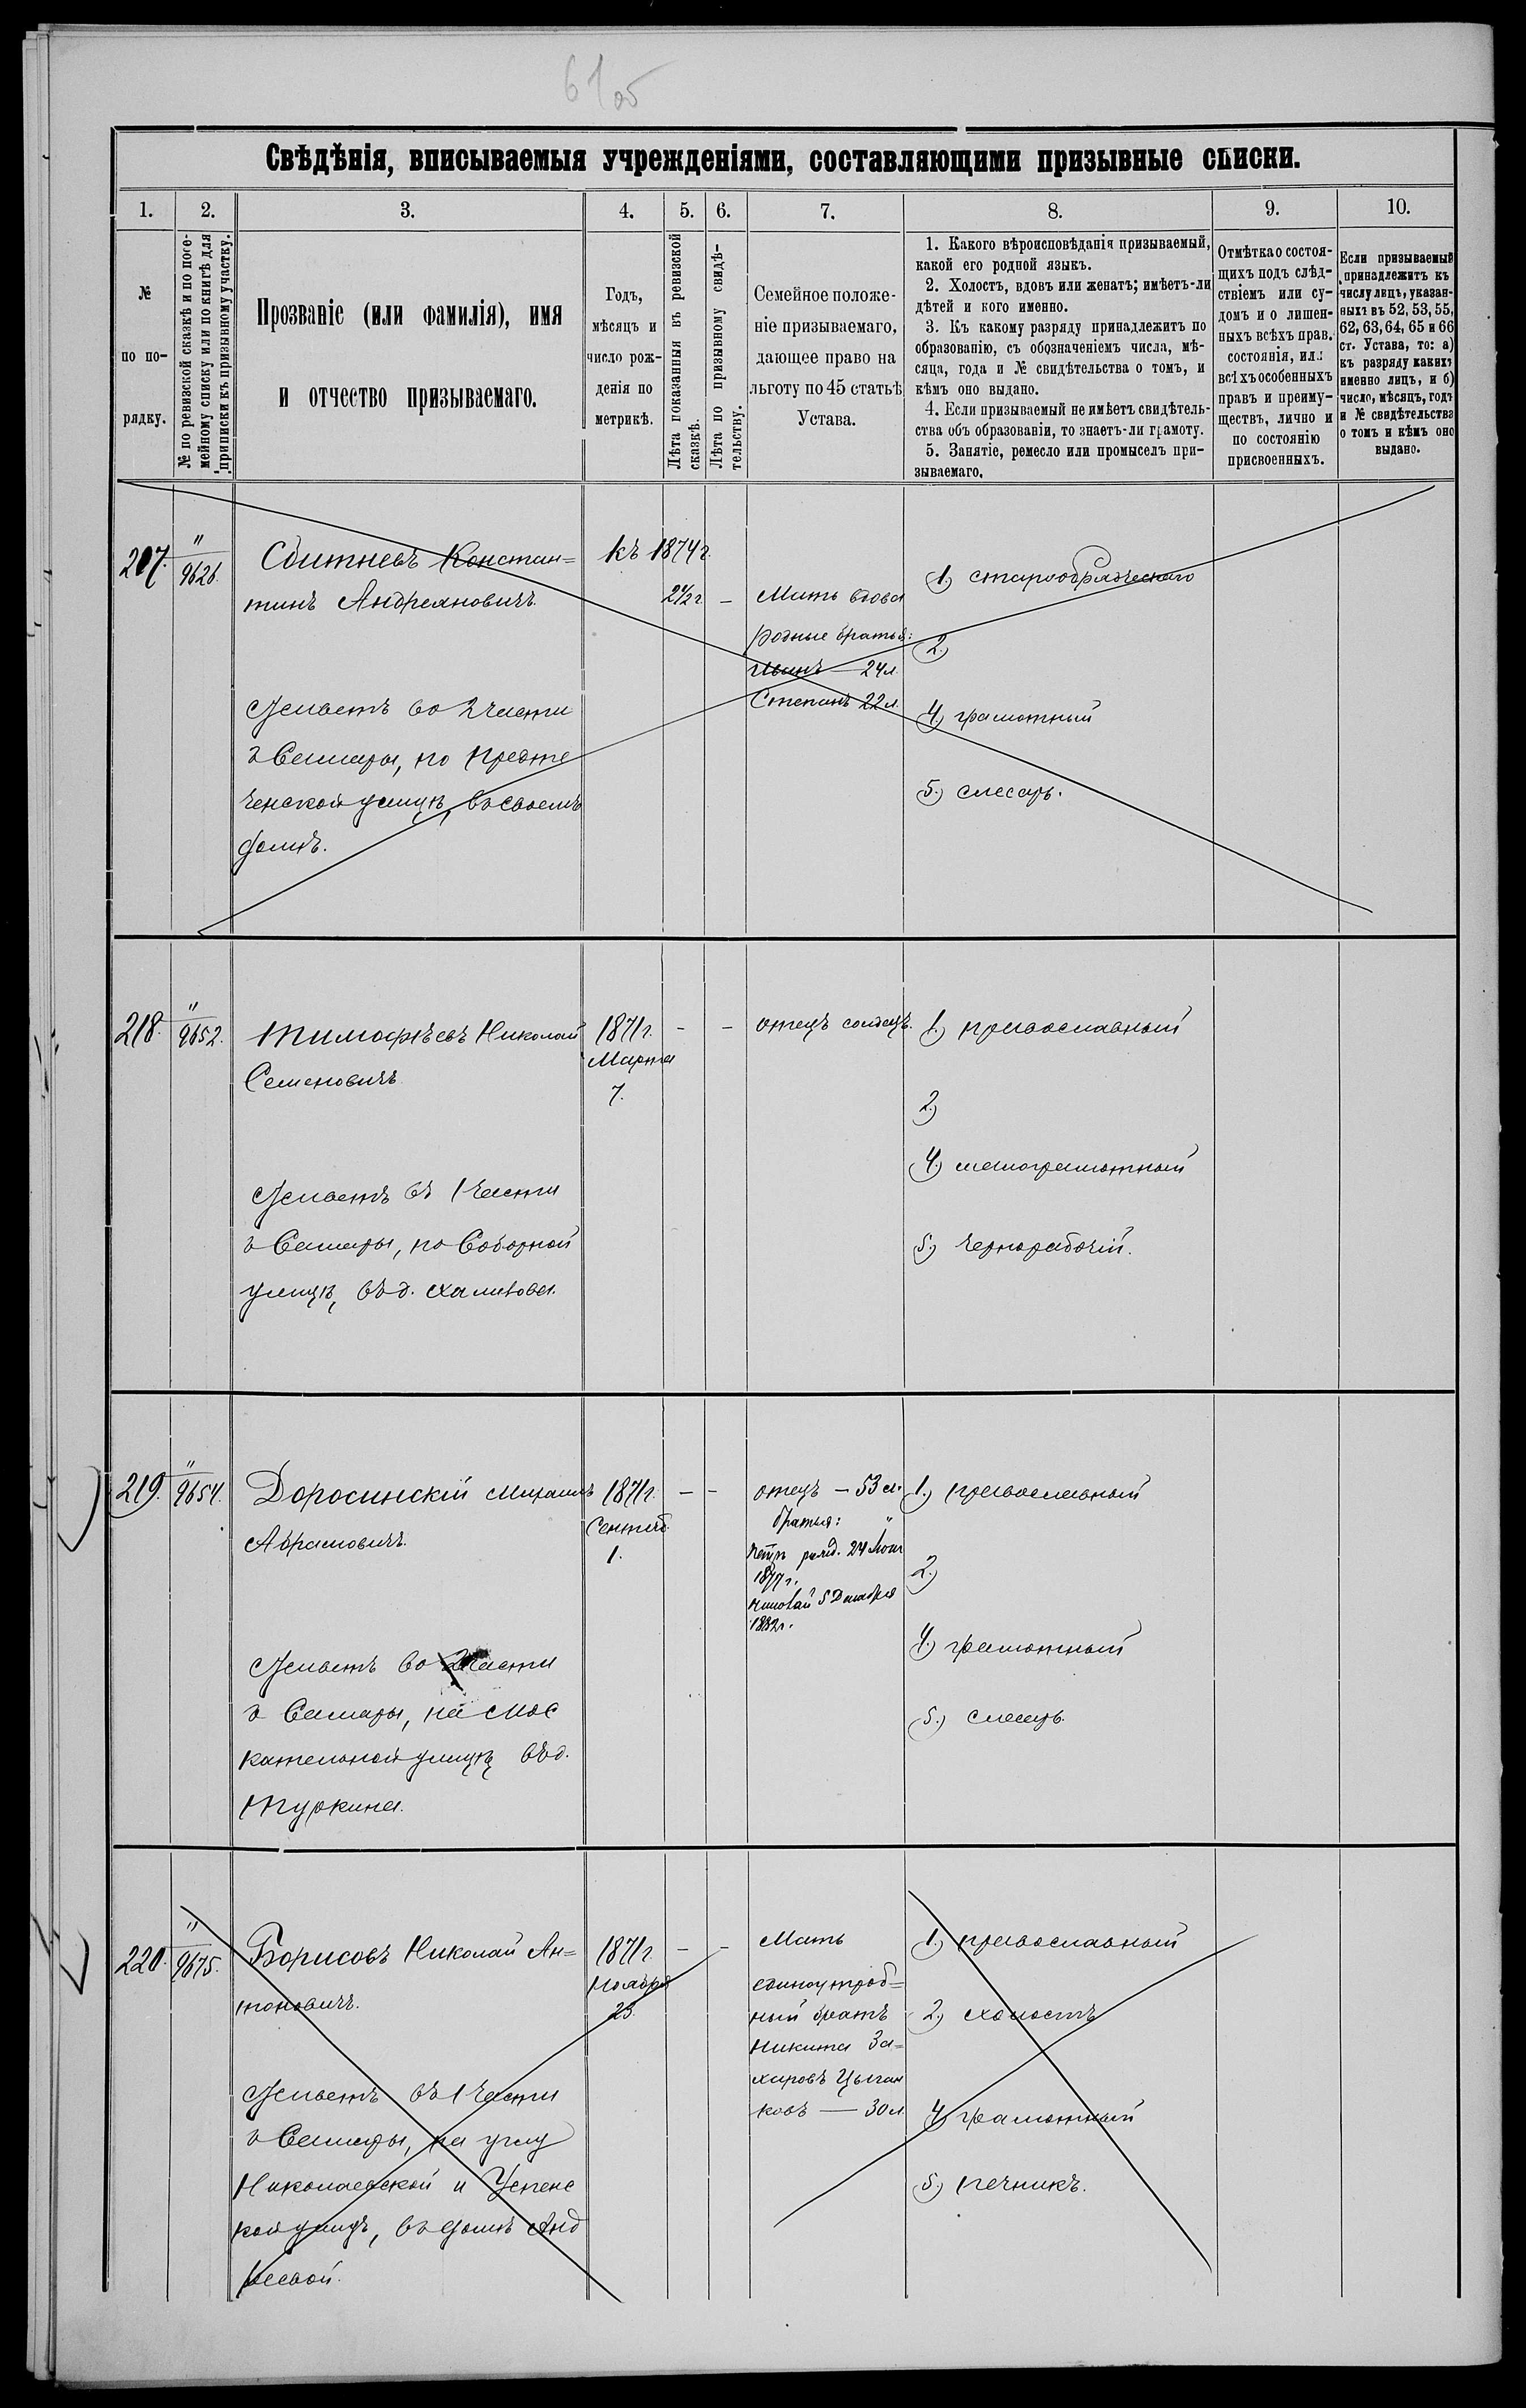 61 об
Свѣдѣнія, вписываемыя учрежденіями, составляющими призывные списки.
1. 2. 3. 4. 5. 6. 7. 8. 9. 10.
№
по по-
рядку.
№ по ревизской сказкѣ и по посе-
мейному списку или по книгѣ для
приписки къ призывному участку.
Прозваніе (или фамилія), имя
и отчество призываемаго.
Годъ,
мѣсяцъ и
число рож-
денія по
метрикѣ.
Лѣта показанныя въ ревизской
сказкѣ.
Лѣта по призывному свидѣ-
тельству.
Семейное положе-
ніе призываемаго,
дающее право на
льготу по 45 статьѣ
Устава.
1. Какого вѣроисповѣданія призываемый,
какой его родной языкъ.
2. Холостъ, вдовъ или женатъ; имѣетъ-ли
дѣтей и кого именно.
3. Къ какому разряду принадлежитъ по
образованію, съ обозначеніемъ числа, мѣ-
сяца, года и № свидѣтельства о томъ, и
кѣмъ оно выдано.
4. Если призываемый не имѣетъ свидѣтель-
ства объ образованіи, то знаетъ-ли грамоту.
5. Занятіе, ремесло или промыселъ при-
зываемаго.
Отмѣтка о состоя-
щихъ подъ слѣд-
ствіемъ или су-
домъ и о лишен-
ныхъ всѣхъ прав.
состоянія, или
всѣхъ особенныхъ
правъ и преиму-
ществъ, лично и
по состоянію
присвоенныхъ.
Если призываемый
принадлежитъ къ
числу лицъ, указан-
ныхъ въ 52, 53, 55,
62, 63, 64, 65 и 66
ст. Устава, то: а)
къ разряду какихъ
именно лицъ, и б)
число, мѣсяцъ, годъ
и № свидѣтельства
о томъ и кѣмъ оно
выдано.
217.
"
9626.
Сбитневъ Констан=
тинъ Андреяновичъ.
Живетъ во 2 части
г Самары, по Предте
ченской улицѣ, въ своемъ
домѣ.
къ 1874 г.
2 1/2 г
–
Мать вдова
родные братья:
Иванъ — 24 л.
Степанъ 22 л.
1.) старообрядческаго
2.)
4.) грамотный
5.) слесарь.
218.
"
9652.
Тимофѣевъ Николай
Семеновичъ
Живетъ въ 1 части
г Самары, по Соборной
улицѣ, въ д. Халитова.
1871 г.
Марта
7.
– –
отецъ солдатъ.
1.) православный
2.)
4.) малограмотный
5.) чернорабочій.
219.
"
9654.
Доросинскій Михаилъ
Абрамовичъ.
Живетъ во 2 части
г Самары, на Мос
кательной улицѣ въ д.
Туркина.
1871 г.
Сентяб.
1.
– –
отецъ – 53 л.
братья: "
Петръ рожд. 24 Іюня
1877 г.
Николай 5 Декабря
1882 г.
1.) православный
2.)
4.) грамотный
5.) слесарь.
220.
"
9675.
Борисовъ Николай Ан=
тоновичъ.
Живетъ въ 1 части
г Самары, на углу
Николаевской и Успенс
кой улицъ, въ домѣ Анд
реевой.
1871 г
Ноября
23.
– –
Мать
единоутроб=
ный братъ
Никита За=
харовъ Цыган
ковъ — 30 л.
1.) православный
2.) холостъ
4.) грамотный
5.) печникъ.